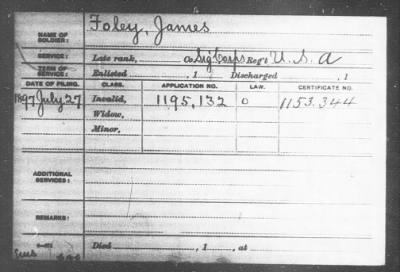 NAME OF SOLDIER: Foley, James
SERVICE: Late rank, Co. Sig Corps Reg't U. S. A
TERM OF SERVICE: Enlisted , 1 Discharged , 1
DATE OF FILING. CLASS. APPLICATION NO. LAW. CERTIFICATE NO.
1897 July 27 Invalid, 1195,132 O 1153.344
Widow,
Minor,
ADDITIONAL SERVICES:
REMARKS:
Died , 1 , at